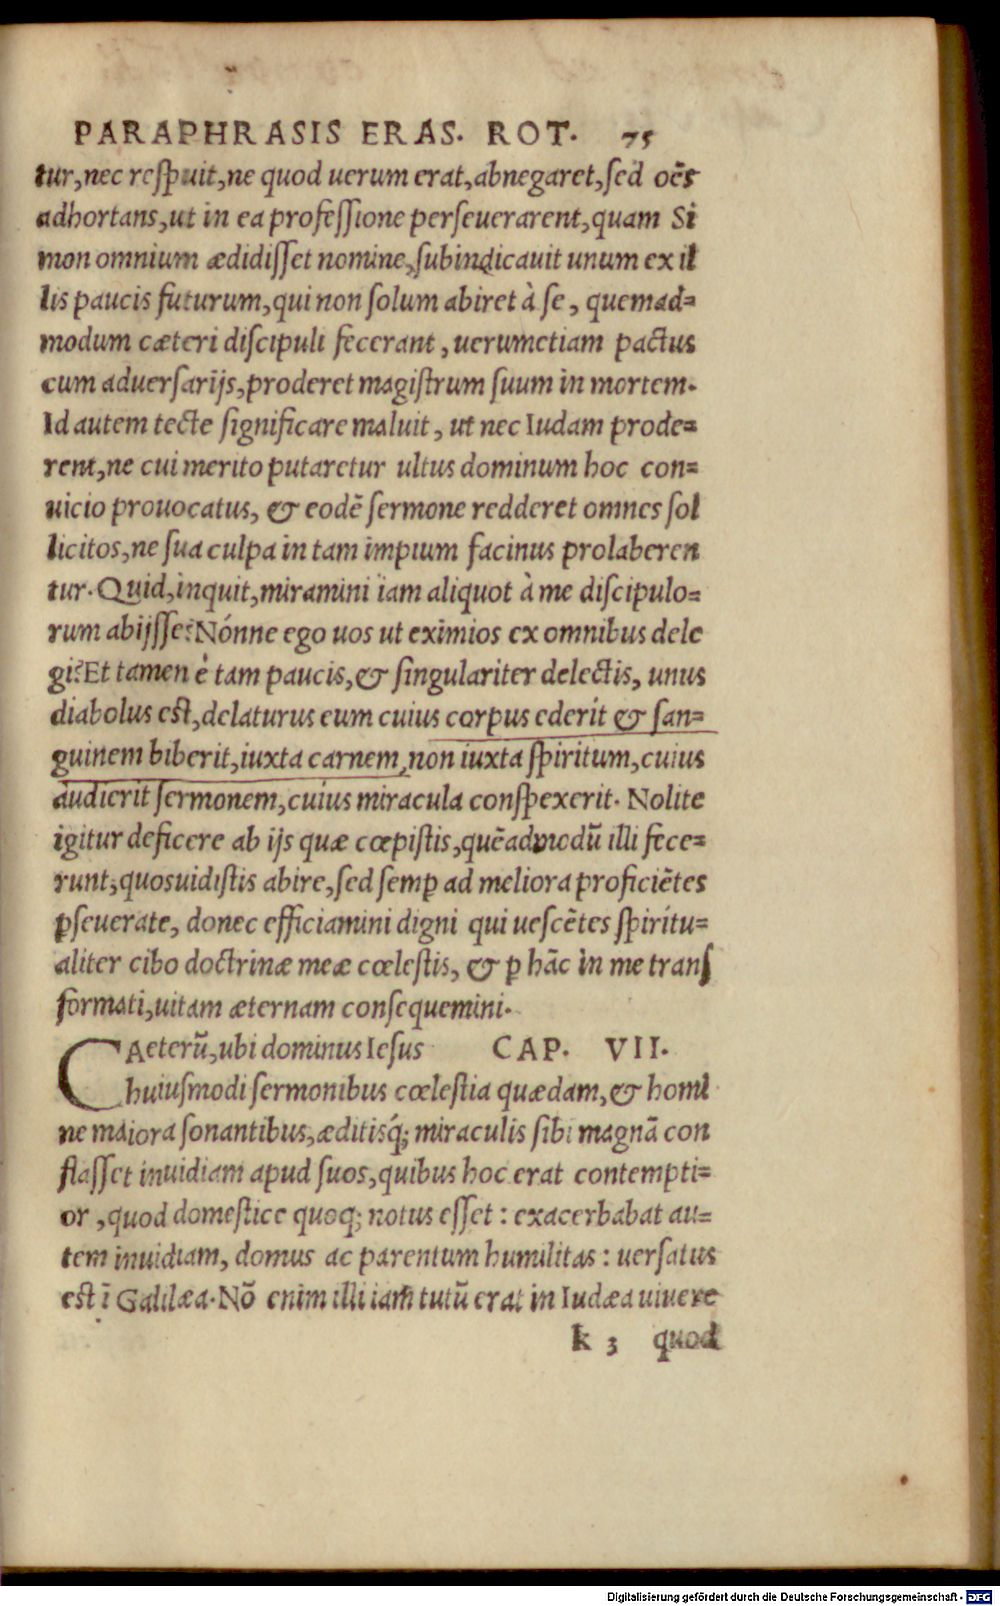 PARAPHRASIS ERAS. ROT. 75
tur, nec respuit, ne quod uerum erat, abnegaret, sed oẽs
adhortans, ut in ea professione perseuerarent, quam Si
mon omnium ædidisset nomine, subindicauit unum ex il
lis paucis futurum, qui non solum abiret à se, quemad=
modum cæteri discipuli fecerant, uerumetiam pactus
cum aduersarijs, proderet magistrum suum in mortem.
Id autem tecte significare maluit, ut nec Iudam prode=
rent, ne cui merito putaretur ultus dominum hoc con=
uicio prouocatus, & eodẽ sermone redderet omnes sol
licitos, ne sua culpa in tam impium facinus prolaberen
tur. Quid, inquit, miramini iam aliquot à me discipulo=
rum abijsse? Nónne ego uos ut eximios ex omnibus dele
gi? Et tamen è tam paucis, & singulariter delectis, unus
diabolus est, delaturus eum cuius corpus ederit & san=
guinem biberit, iuxta carnem, non iuxta spiritum, cuius
audierit sermonem, cuius miracula conspexerit. Nolite
igitur deficere ab ijs quæ cœpistis, quẽadmodũ illi fece=
runt, quos uidistis abire, sed semꝑ ad meliora proficiẽtes
ꝑseuerate, donec efficiamini digni qui uescẽtes spiritu=
aliter cibo doctrinæ meæ cœlestis, & ꝑ hãc in me trans
formati, uitam æternam consequemini.
CAeterũ, ubi dominus Iesus CAP. VII.
huiusmodi sermonibus cœlestia quædam, & homi
ne maiora sonantibus, æditisq́; miraculis sibi magnã con
flasset inuidiam apud suos, quibus hoc erat contempti=
or, quod domestice quoq; notus esset: exacerbabat au=
tem inuidiam, domus ac parentum humilitas: uersatus
est ĩ Galilæa. Nõ enim illi iam tutũ erat in Iudæa uiuere
k 3 quod
Digitalisierung gefördert durch die Deutsche Forschungsgemeinschaft - DFG